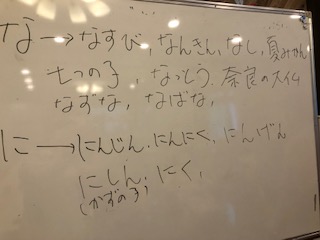 な→なすび,なんきん,なし,夏みかん
七つの子,なっとう.奈良のスイム
なずな,なばな,
に→にんじん,にんにく,にんげん
にしん,にく,
(かずの子)